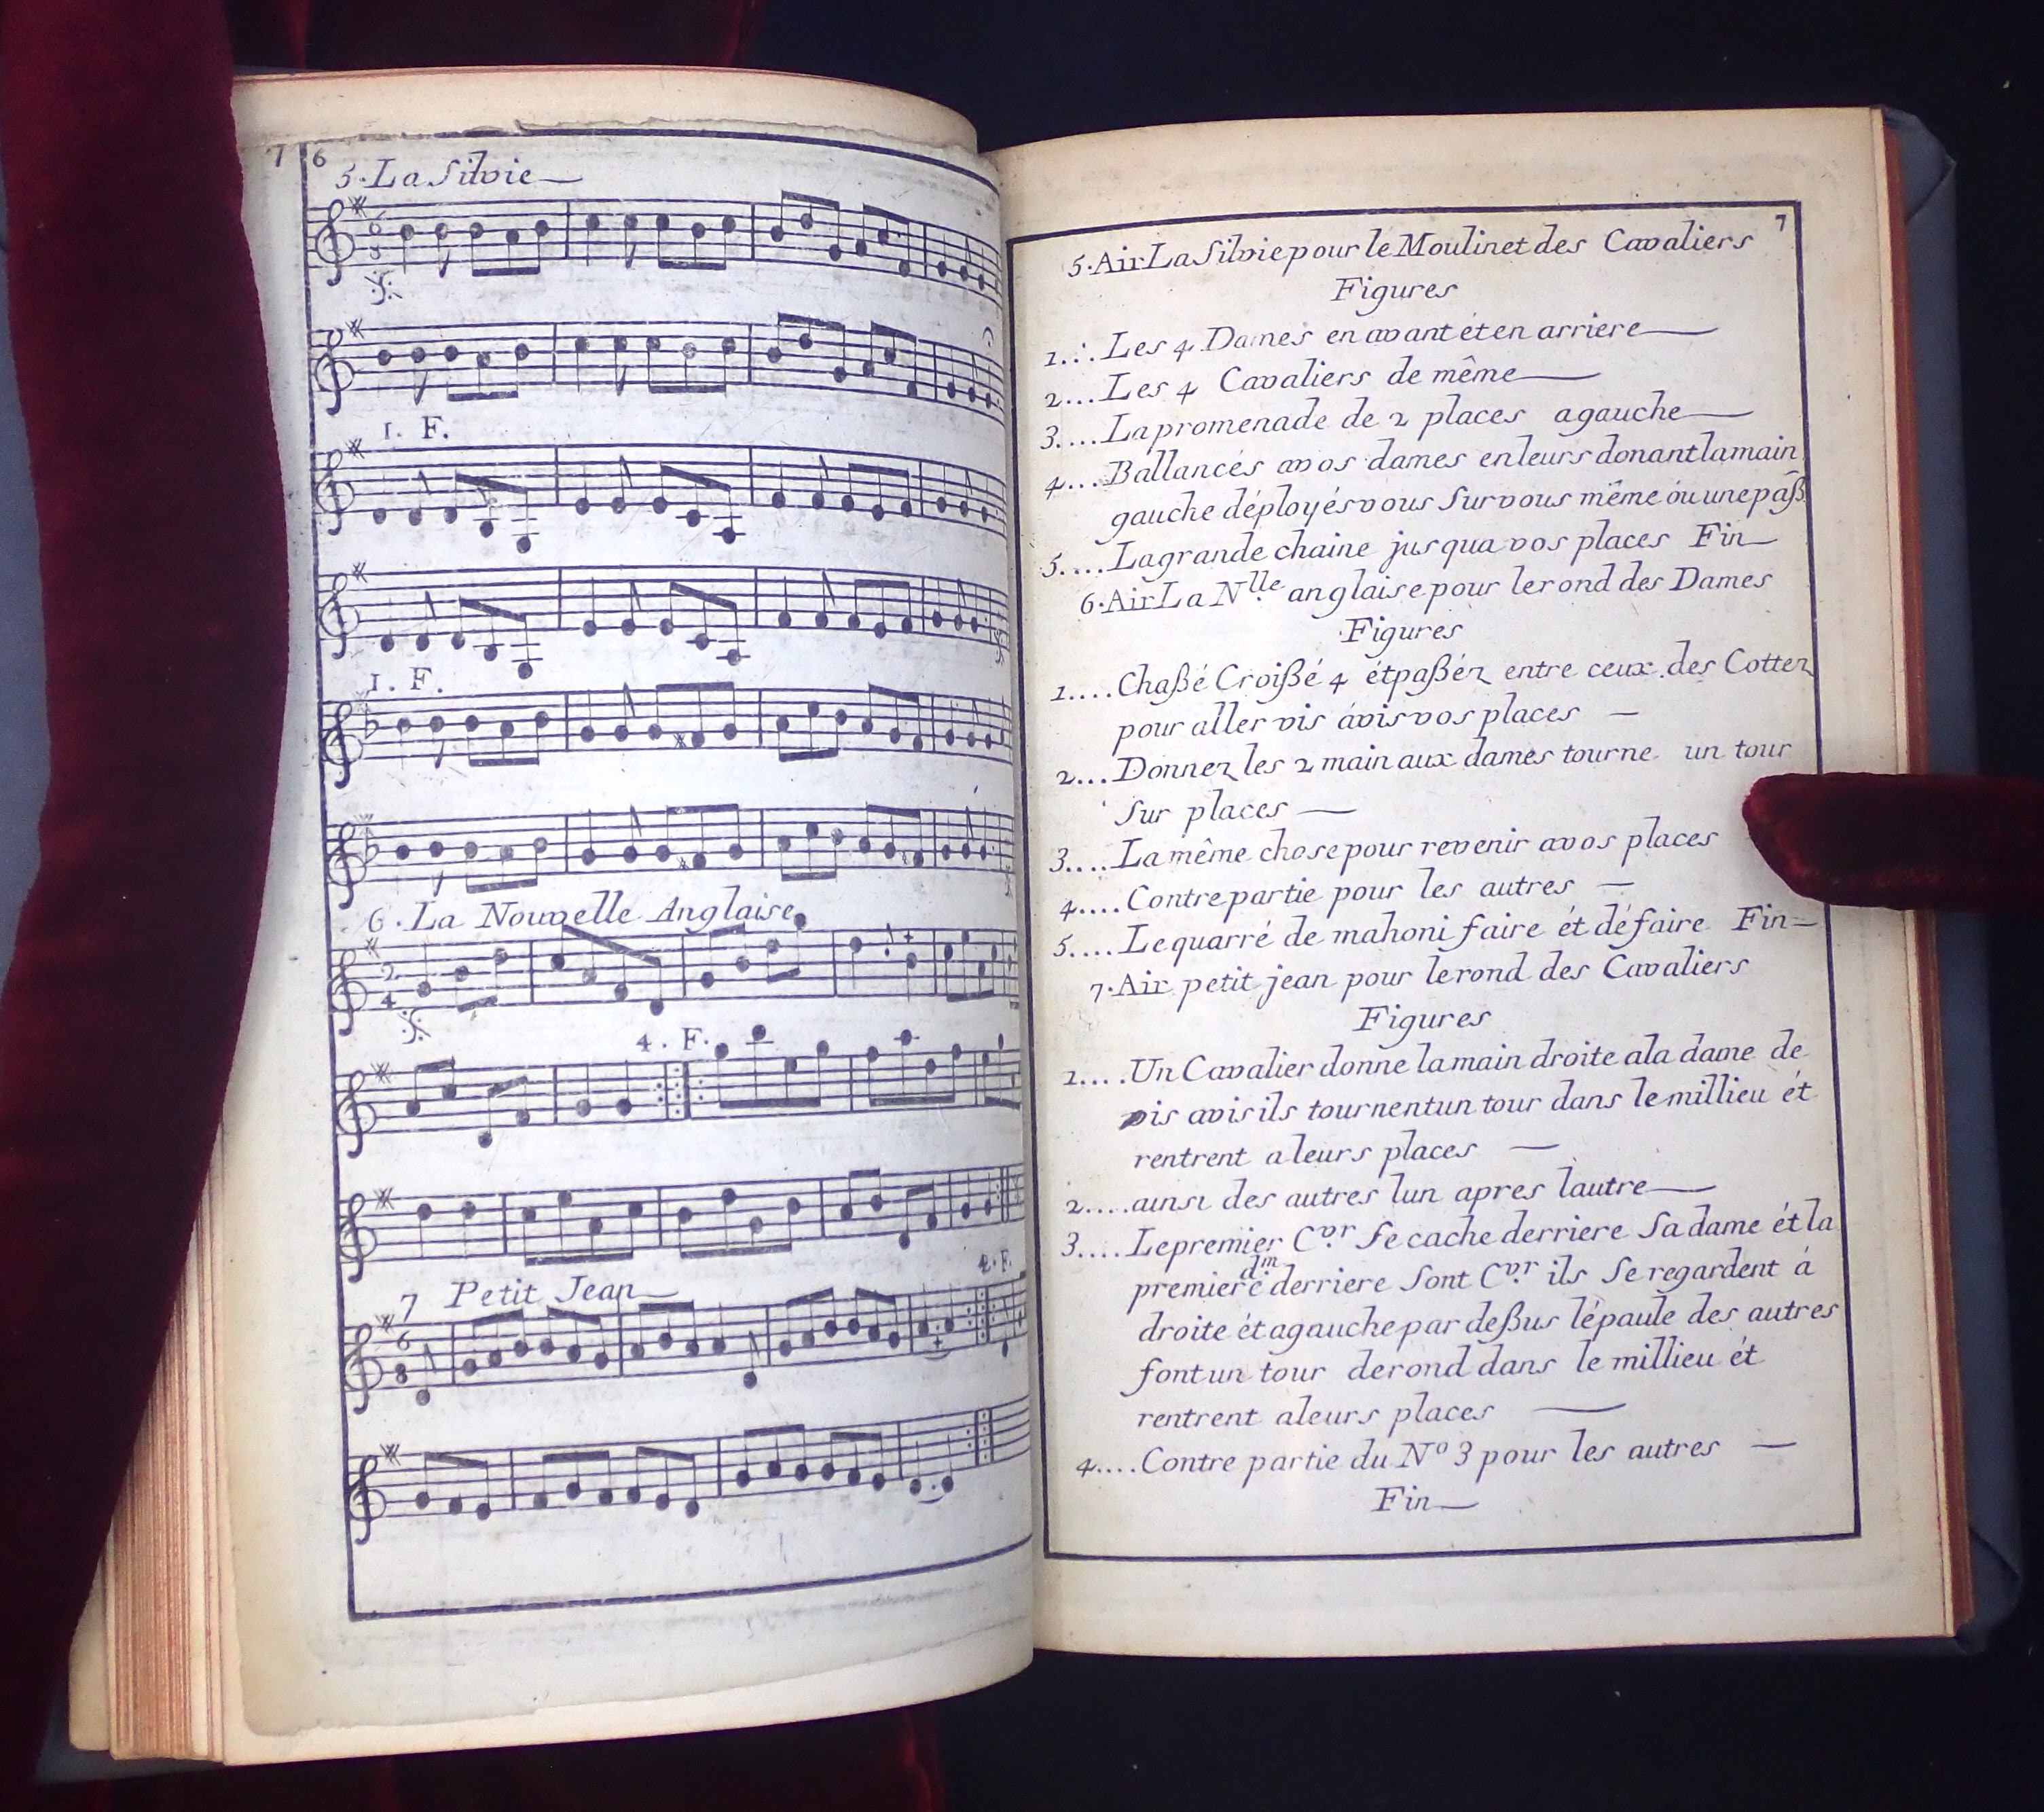 7 6
5. La Silvie
6
8
1. F.
1. F.
6. La Nouvelle Anglaise
2
4
4. F.
4. F.
7 Petit Jean
6
8
7
5. Air La Silvie pour le Moulinet des Cavaliers
Figures
1... Les 4 Dames en avant ét en arriere
2... Les 4 Cavaliers de même
3.... La promenade de 2 places a gauche
4... Ballancés a vos dames en leurs donant la main
gauche déployés vous Sur vous même óu une paß
5.... La grande chaine jusqua vos places Fin
6. Air La N.lle anglaise pour le rond des Dames
Figures
1.... Chaßé Croißé 4 ét paßéz entre ceux des Cottez
pour aller vis ávis vos places
2... Donnez les 2 main aux dames tourne un tour
Sur places
3.... La même chose pour revenir a vos places
4.... Contre partie pour les autres
5.... Le quarré de mahoni faire ét défaire Fin
7. Air petit jean pour le rond des Cavaliers
Figures
1.... Un Cavalier donne la main droite a la dame de
vis a vis ils tournent un tour dans le millieu ét
rentrent a leurs places
2.... ainsi des autres lun apres lautre
3.... Le premier C.vr Se cache derriere Sa dame ét la
premiere dm derriere Sont C.vr ils Se regardent á
droite ét a gauche par deßus lépaule des autres
font un tour de rond dans le millieu ét
rentrent a leurs places
4.... Contre partie du No 3 pour les autres
Fin